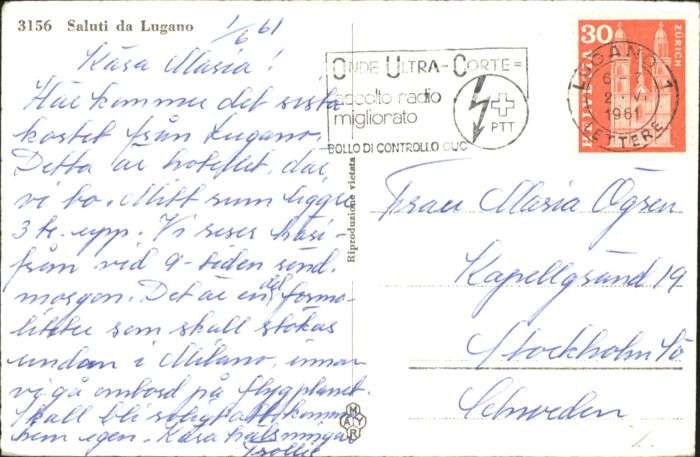 3156 Saluti da Lugano
1/6 61
Kära Maria!
Här kommer det sista
kortet från Lugano.
Detta är hotellet, där
vi bo. Mitt rum ligger
3 tr. upp. Vi reser härifrån
vid 9-tiden sönd.
morgon. Det är en del forma-
liteter som skall stökas
undan i Milano, innan
vi gå ombord på flygplanet.
Skall bli roligt att komma
hem igen. Kära hälsningar
Trollet
Riproduzione vietata
MAYR
ONDE ULTRA-CORTE=
ascolto radio
migliorato
PTT
BOLLO DI CONTROLLO QUC
LUGANO 1
2.VI.
1961
LETTERE
30
HELVETIA
ZÜRICH
Frau Maria Ögren
Kapellgränd 19
Stockholm Sö
Schweden